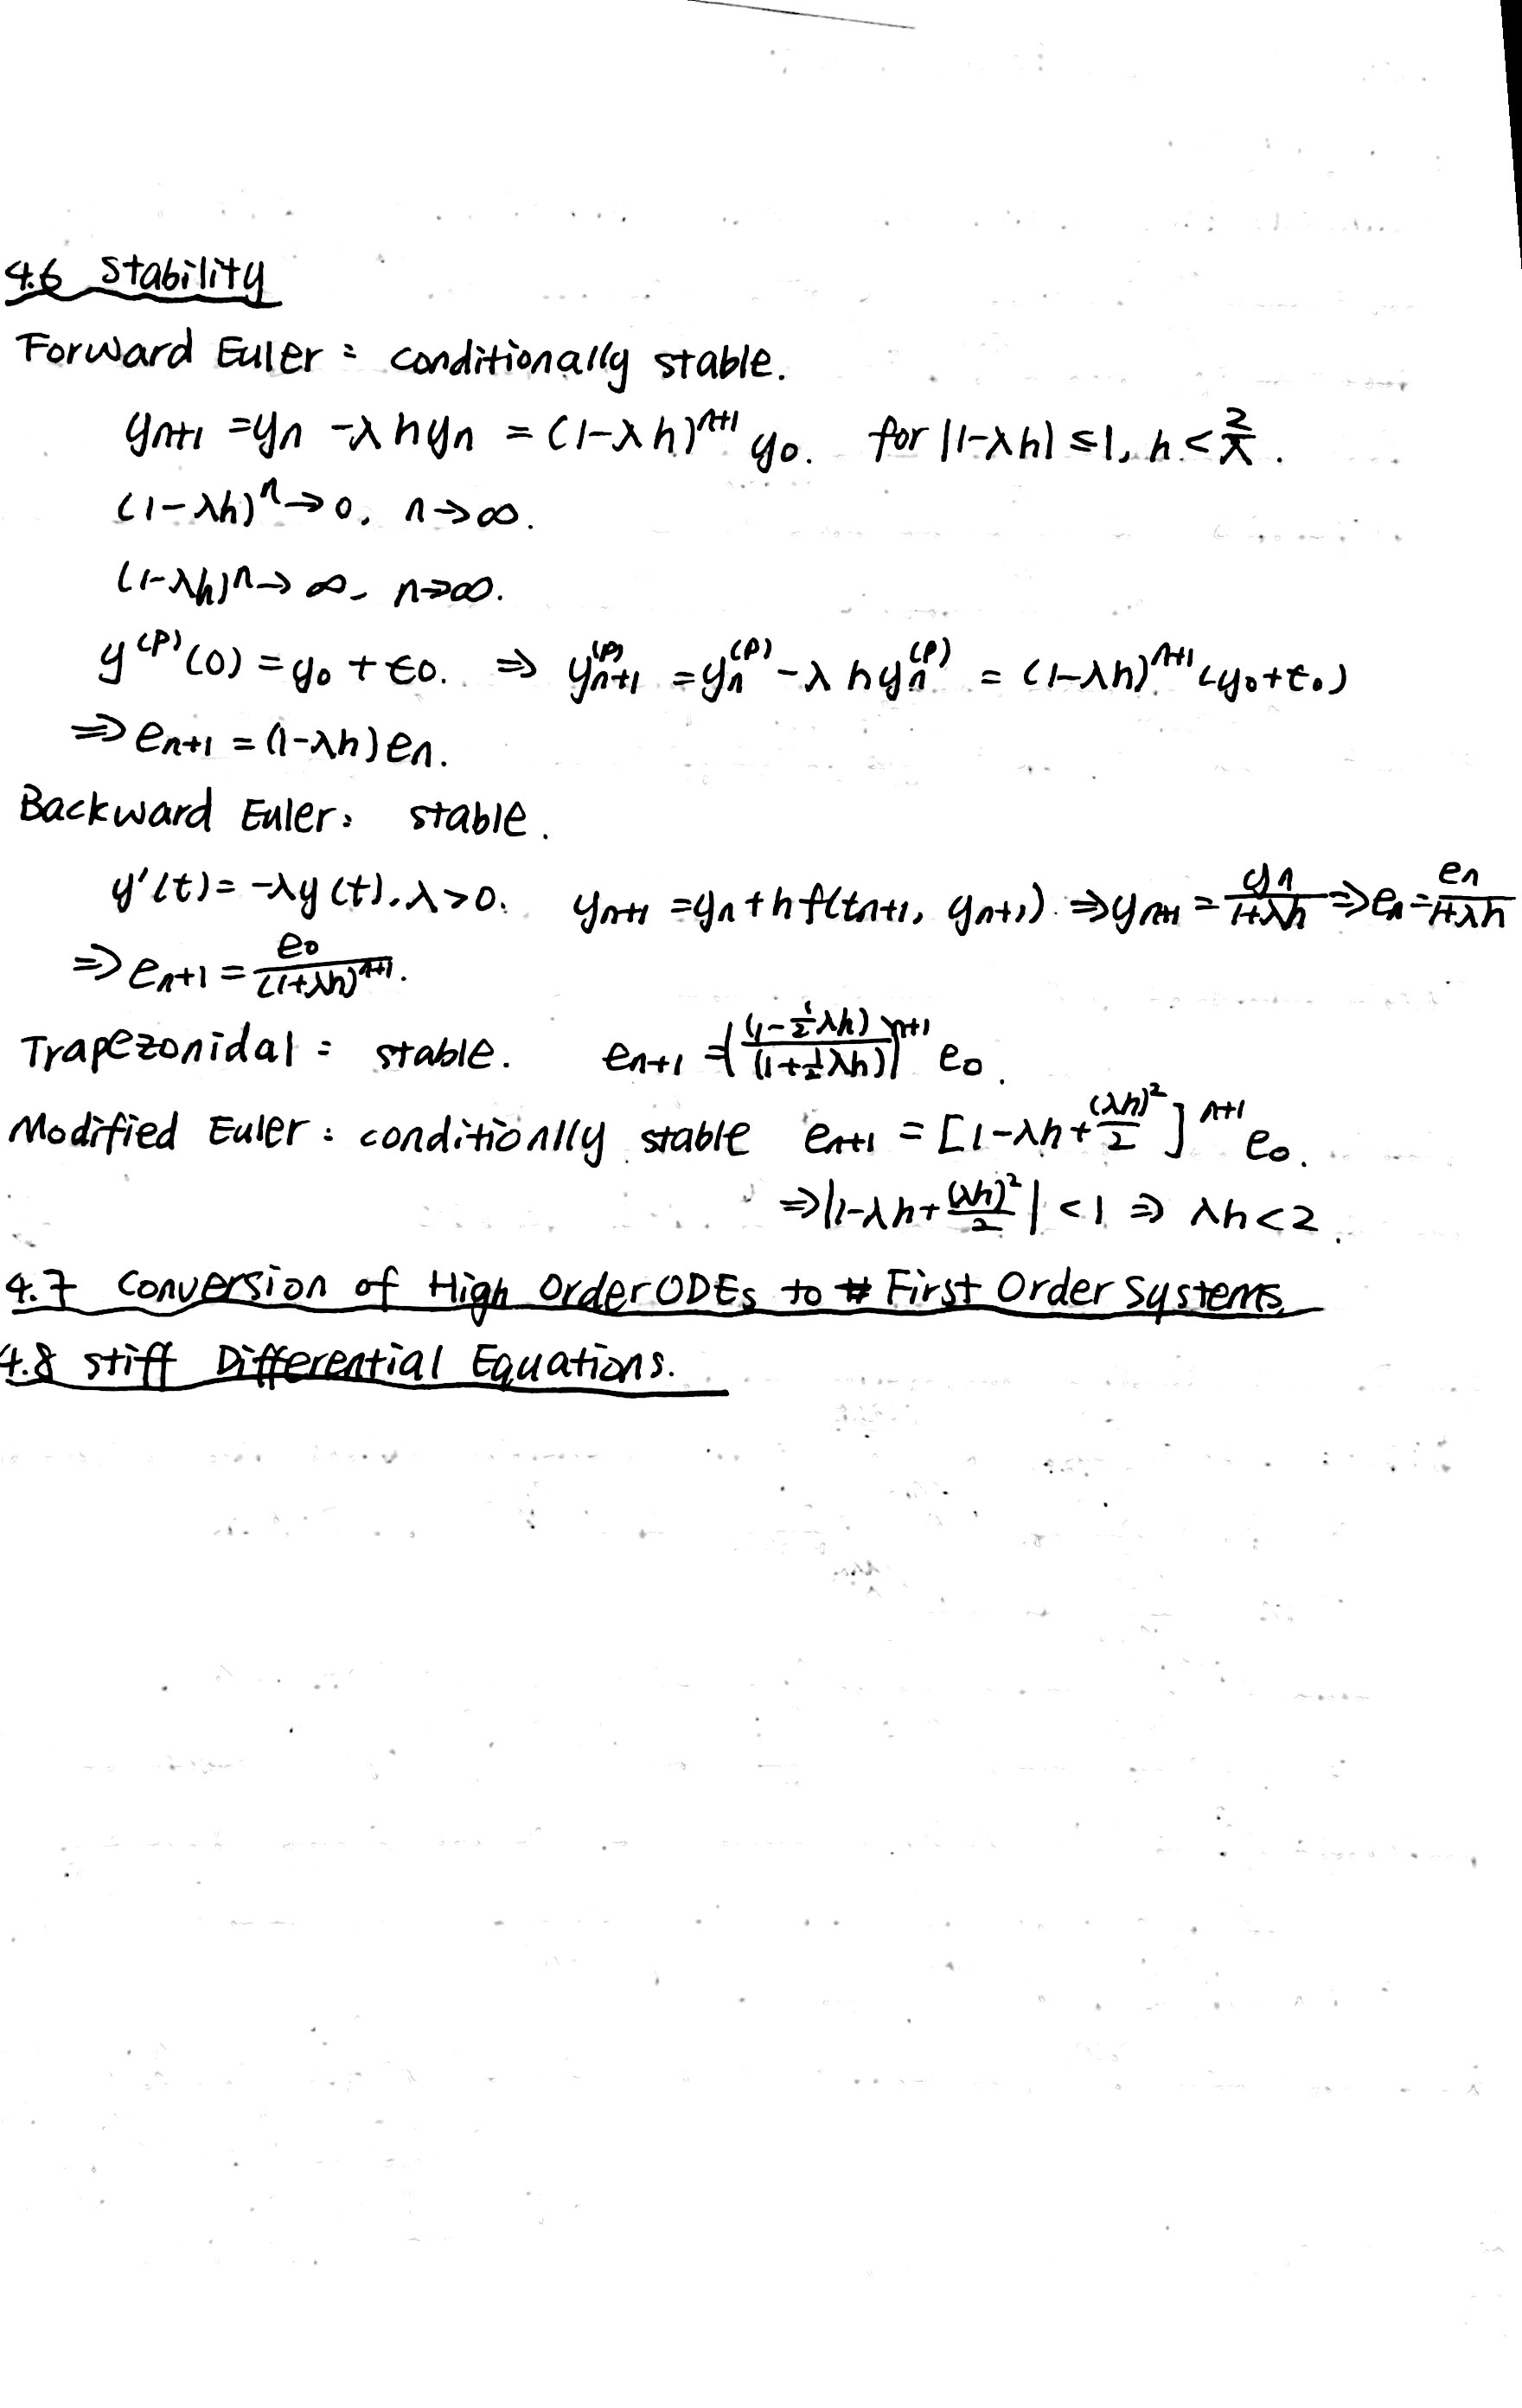 4.6 Stability
Forward Euler: conditionally stable.
yn+1 = yn - λhyn = (1-λh)^n+1 y0. for |1-λh| ≤ 1, h < 2/λ.
(1-λh)^n → 0, n → ∞.
(1-λh)^n → ∞, n → ∞.
y^(p)(0) = y0 + ϵ0. ⇒ y^(p)n+1 = yn^(p) - λhyn^(p) = (1-λh)^n+1 (y0+ϵ0)
⇒ en+1 = (1-λh)en.
Backward Euler: stable.
y'(t) = -λy(t), λ>0. yn+1 = yn + hf(tn+1, yn+1) ⇒ yn+1 = yn/(1+λh) ⇒ en = en/(1+λh)
⇒ en+1 = e0/(1+λh)^n+1.
Trapezonidal: stable. en+1 = ((1-1/2λh)/(1+1/2λh))^n+1 e0.
Modified Euler: conditionlly stable en+1 = [1-λh+(λh)^2/2]^n+1 e0.
⇒ |1-λh+(λh)^2/2| < 1 ⇒ λh<2.
4.7 Conversion of High Order ODEs to First Order Systems
4.8 Stiff Differential Equations.